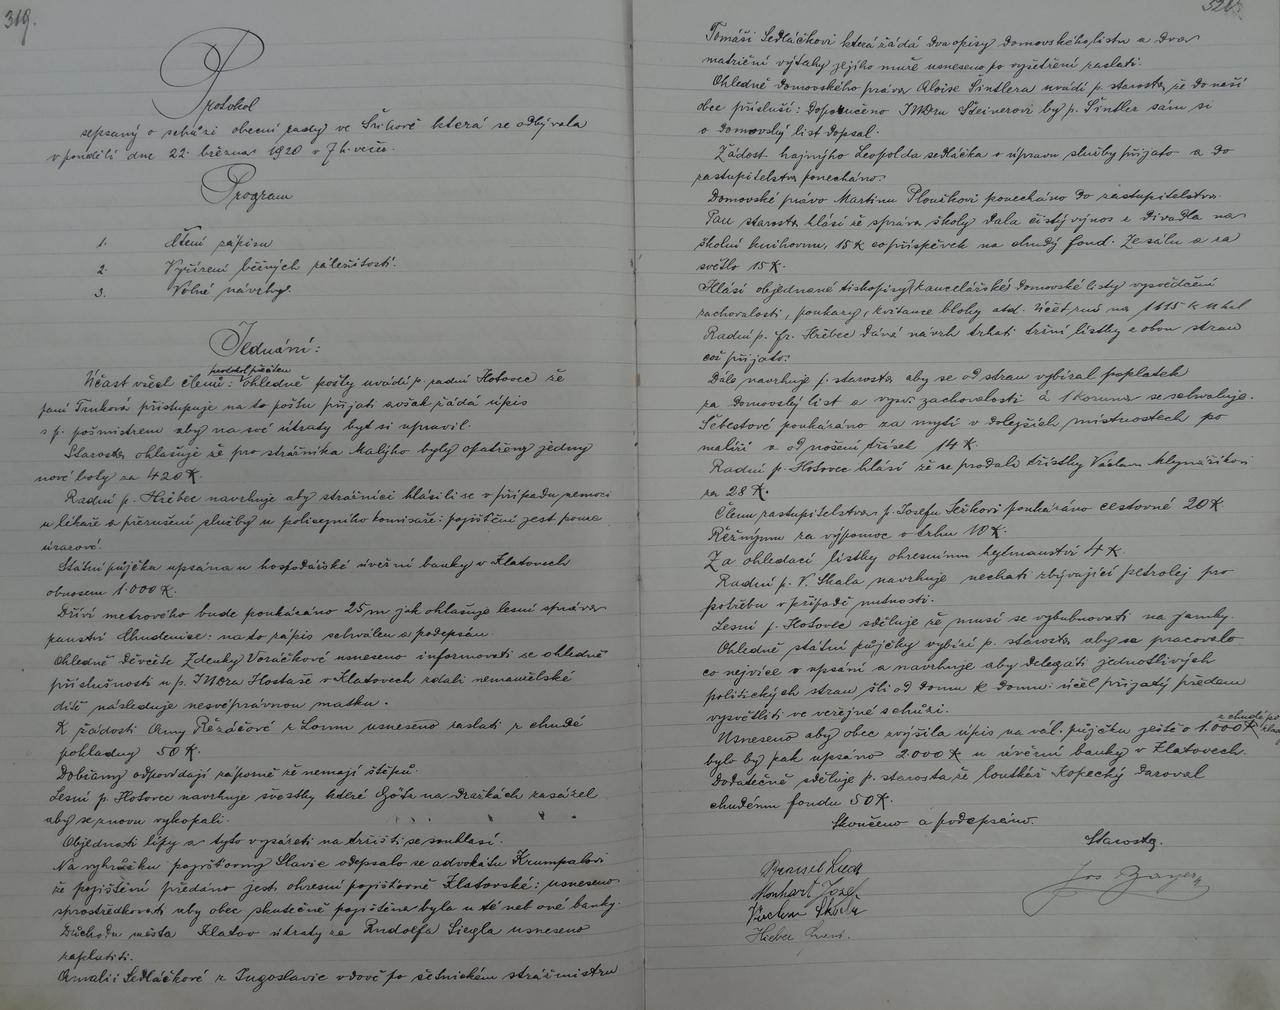 319.
Protokol
sepsaný o schůzi obecní rady ve Švihově která se odbývala
v pondělí dne 22. března 1920 v 7 h. večer.
Program
1. Čtení zápisu
2. Vyřízení běžných záležitostí.
3. Volné návrhy.
Jednání:
protokol přečten
Účast všech členů: Ohledně pošty uvádí p. radní Hotovec že
paní Trnková přistupuje na to poštu přijati avšak žádá úpis
s p. poštmistrem aby na své útraty byt si upravil.
Starosta ohlašuje že pro strážníka Malýho byly opatřeny jedny
nové boty za 420 K.
Radní p. Hřebec navrhuje aby strážníci hlásili se v případu nemoci
u lékaře a přerušení služby u policejního komisaře: pojištění jest pouze
úrazové.
Státní půjčka upsána u hospodářské úvěrní banky v Klatovech
obnosem 1.000 K.
Dříví metrového bude poukázáno 25 m jak ohlašuje lesní správa
panství Chudenice: na to zápis schválen a podepsán.
Ohledně děvčete Zdenky Voráčkové usneseno informovati se ohledně
příslušnosti u p. JUDra Hostaše v Klatovech zdali nemanželské
dítě následuje nesvéprávnou matku.
K žádosti Anny Řezáčové z Loun usneseno zaslati z chudé
pokladny 50 K.
Dobřany odpovídají záporně že nemají štěpů.
Lesní p. Hotovec navrhuje švestky které Götz na Dražkách zasázel
aby se znovu vykopali.
Objednati lípy a tyto vysázeti na tržišti se souhlasí.
Na vyhrůžku pojišťovny Slavie odepsalo se advokátu Krumpalovi
že pojištění předáno jest okresní pojišťovně Klatovské: usneseno
sprostředkovati aby obec skutečně pojištěna byla u té neb oné banky.
Důchodu města Klatov útraty za Rudolfa Siegla usneseno
zaplatiti.
Amalii Sedláčkové z Jugoslavie vdově po četnickém strážmistru
Tomáši Sedláčkovi která žádá dva opisy domovského listu a dva
matriční výtahy jejího muže usneseno po vyšetření zaslati.
Ohledně domovského práva Aloise Šintlera uvádí p. starosta že do naší
obce přísluší: Doporučeno JUDru Steinerovi by p. Šintler sám si
o domovský list dopsal.
Žádost hajného Leopolda Sedláčka o úpravu služby přijato a do
zastupitelstva ponecháno.
Domovské právo Martinu Ploučkovi ponecháno do zastupitelstva.
Pan starosta hlásí že správa školy dala čistý výnos z divadla na
školní knihovnu, 15 K co příspěvek na chudý fond. Ze sálu a za
světlo 15 K.
Hlásí objednané tiskopisy kancelářské domovské listy vysvědčení
zachovalosti, poukazy, kvitance blohy atd. Účet zní na 1115 K
Radní p. Fr. Hřebec dává návrh trhati tržní lístky z obou stran
což přijato.
Dále navrhuje p. starosta aby se od stran vybíral poplatek
za domovský list a vysv. zachovalosti à 1 koruna se schvaluje.
Šebestové poukázáno za mytí v dolejších místnostech po
malíři a od nošení třísek 14 K.
Radní p. Hotovec hlásí že se prodali třístky Václavu Mlynaříkovi
za 28 K.
Členu zastupitelstva p. Josefu Ježkovi poukázáno cestovné 20 K.
za výpomoc o trhu 10 K.
Za ohledací lístky okresnímu hejtmanství 4 K.
Radní p. V. Skala navrhuje nechati zbývající petrolej pro
potřebu v případě nutnosti.
Lesní p. Hotovec sděluje že musí se vybubnovati na jamky.
Ohledně státní půjčky vybízí p. starosta aby se pracovalo
co nejvíce o upsání a navrhuje aby delegáti jednotlivých
politických stran šli od domu k domu: účel přijatý předem
vysvětliti ve veřejné schůzi.
Usneseno aby obec zvýšila úpis na vál. půjčku ještě o 1.000 K z chudé po
bylo by pak upsáno 2000 K u úvěrní banky v Klatovech.
Dodatečně sděluje p. starosta že loutkář Kopecký daroval
chudému fondu 50 K.
Skončeno a podepsáno.
Starosta.
Jos Bayer
Monhart Josef
Václav Skala
Hřebec